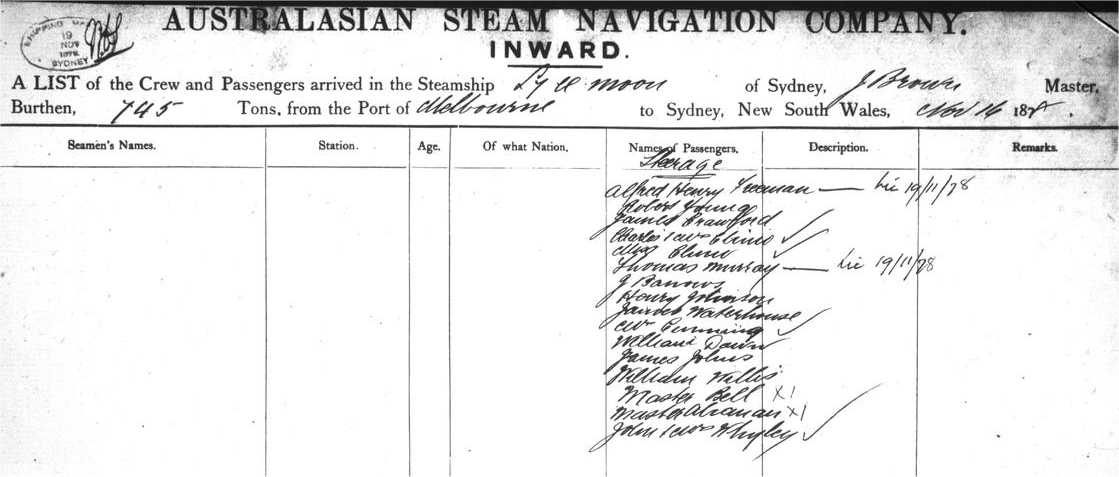 AUSTRALASIAN STEAM NAVIGATION COMPANY.
19
NOV
SYDNEY
INWARD.
A LIST of the Crew and Passengers arrived in the Steamship Ly ee moon of Sydney, J Brown Master,
Burthen, 745 Tons, from the Port of Melbourne to Sydney, New South Wales, Nov 16 1878.
Seamen's Names. Station. Age. Of what Nation. Names of Passengers. Description. Remarks.
Steerage
Alfred Henry Freeman — Lic 19/11/78
Robert Young
James Crawford
Charles
Thomas Murray — Lic 19/11/78
J
Henry Johnson
Waterhouse
William
James Johns
William Wallis
Master Bell X1
Master X1
John